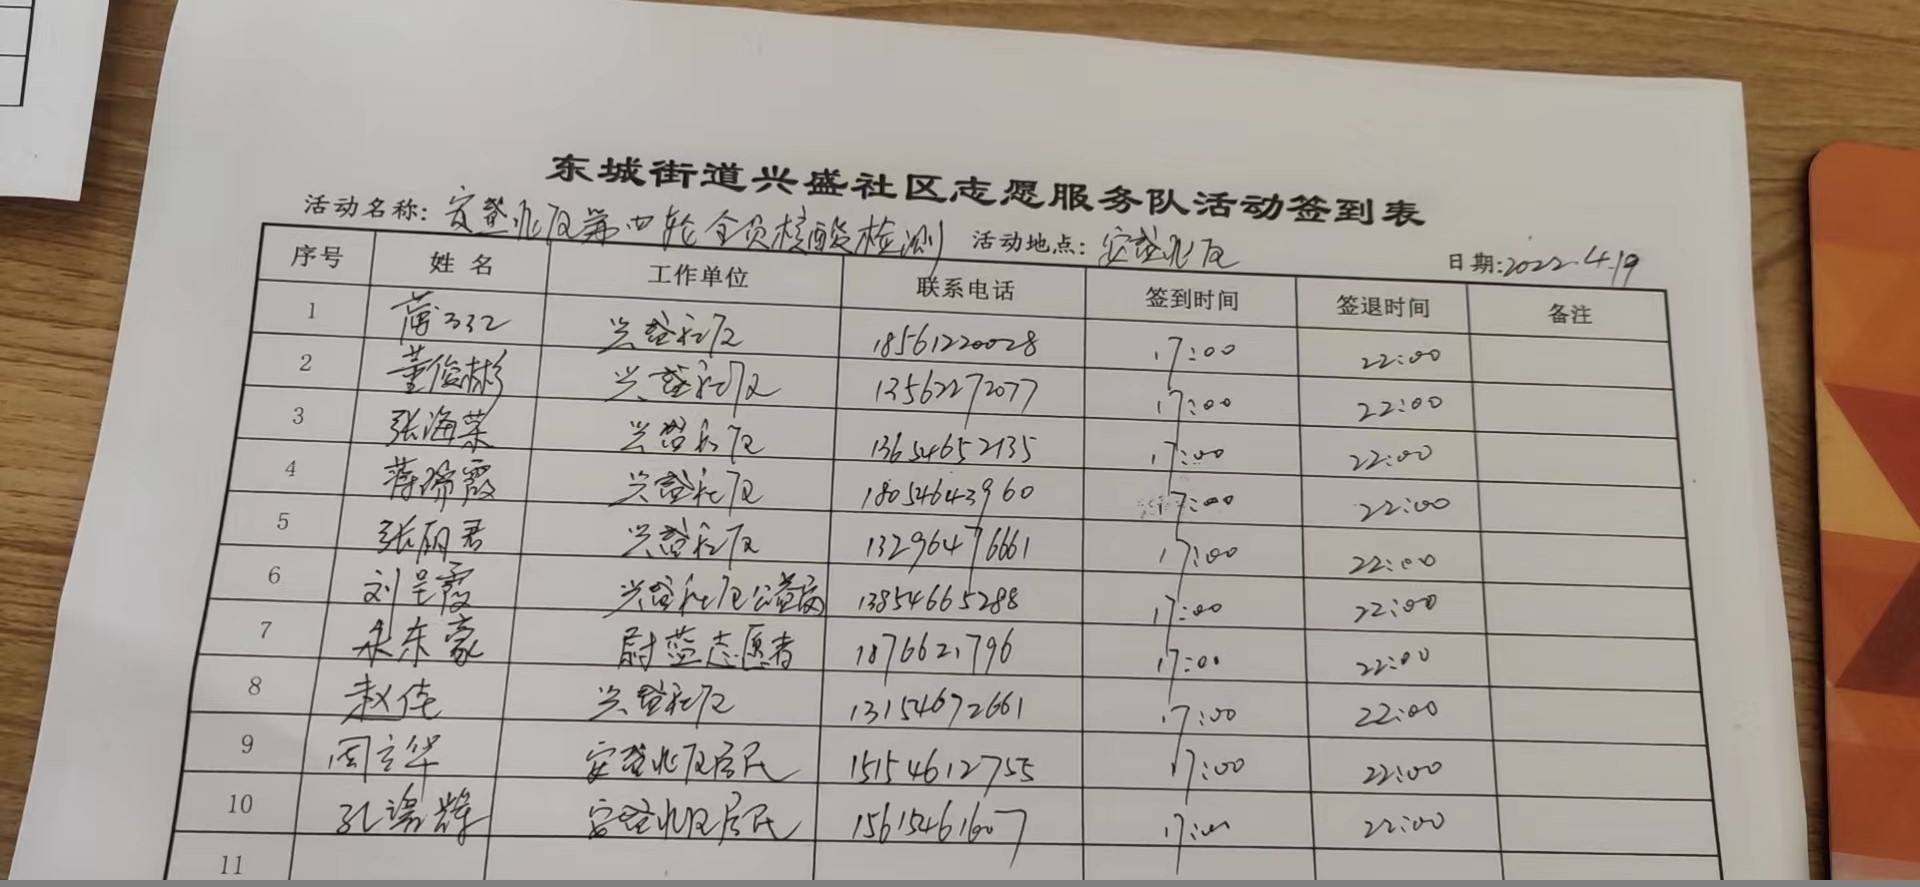 东城街道兴盛社区志愿服务队活动签到表
活动名称: 安盛北区第四轮全员核酸检测 活动地点: 安盛北区 日期:2022.4.19
序号 姓名 工作单位 联系电话 签到时间 签退时间 备注
1 兴盛社区 18561220028 17:00 22:00
2 董俊彬 兴盛社区 13562272077 17:00 22:00
3 张海荣 兴盛社区 13654652135 17:00 22:00
4 蒋瑞霞 兴盛社区 18054643960 17:00 22:00
5 张丽君 兴盛社区 13296476661 17:00 22:00
6 刘呈霞 兴盛社区公益岗 13854665288 17:00 22:00
7 朱东豪 尉蓝志愿者 1876621796 17:00 22:00
8 赵佳 兴盛社区 13154672661 17:00 22:00
9 周立华 安盛北区居民 15154612755 17:00 22:00
10 孔瑞辉 安盛北区居民 15615461607 17:00 22:00
11